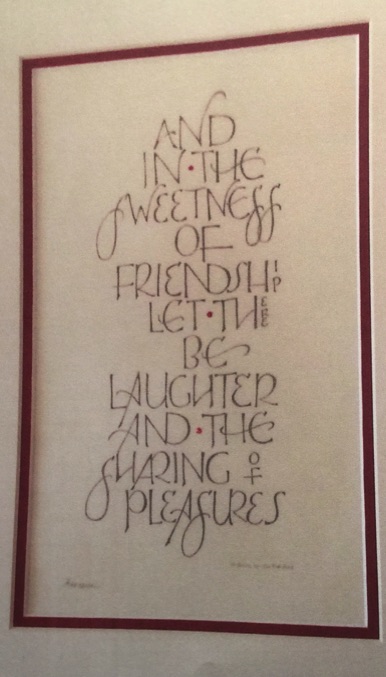 AND
IN • THE
SWEETNESS
OF
FRIENDSHIP
LET • THERE
BE
LAUGHTER
AND • THE
SHARING OF
PLEASURES